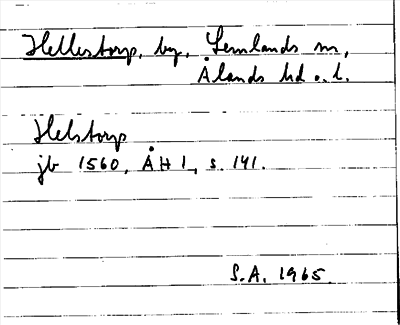 Hellestorp, by, Lemlands sn,
Ålands hd o. l.
Helstorp
jb 1560, ÅH 1, s. 141.
S.A. 1965.